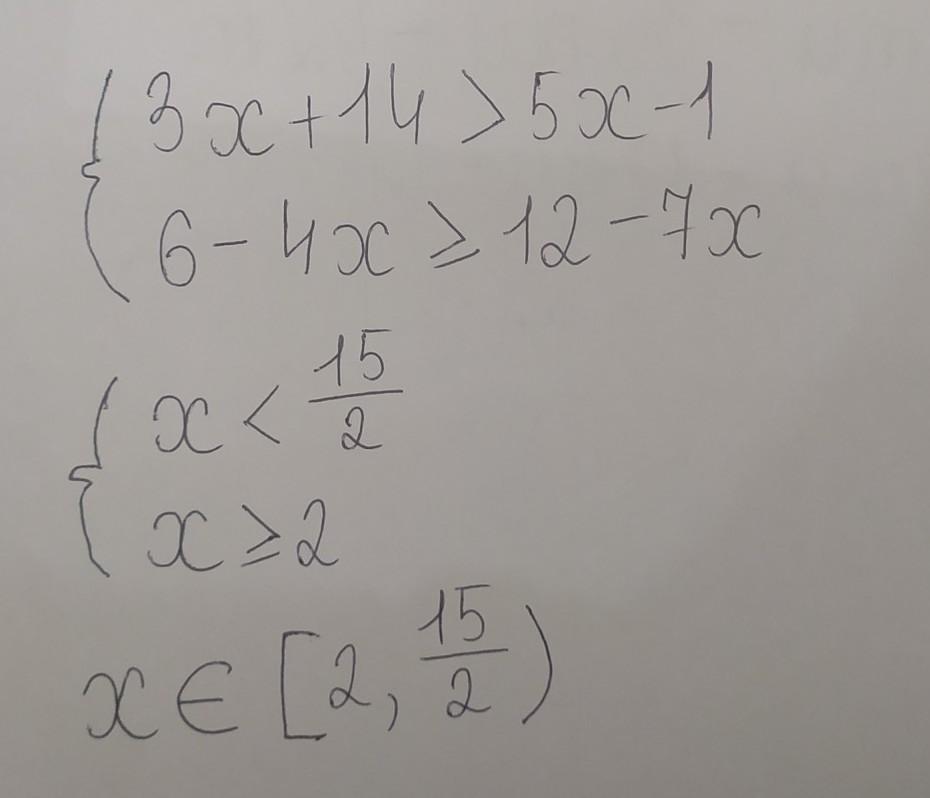 3x+14>5x-1
6-4x≥12-7x
x<15/2
x≥2
x∈[2,15/2)